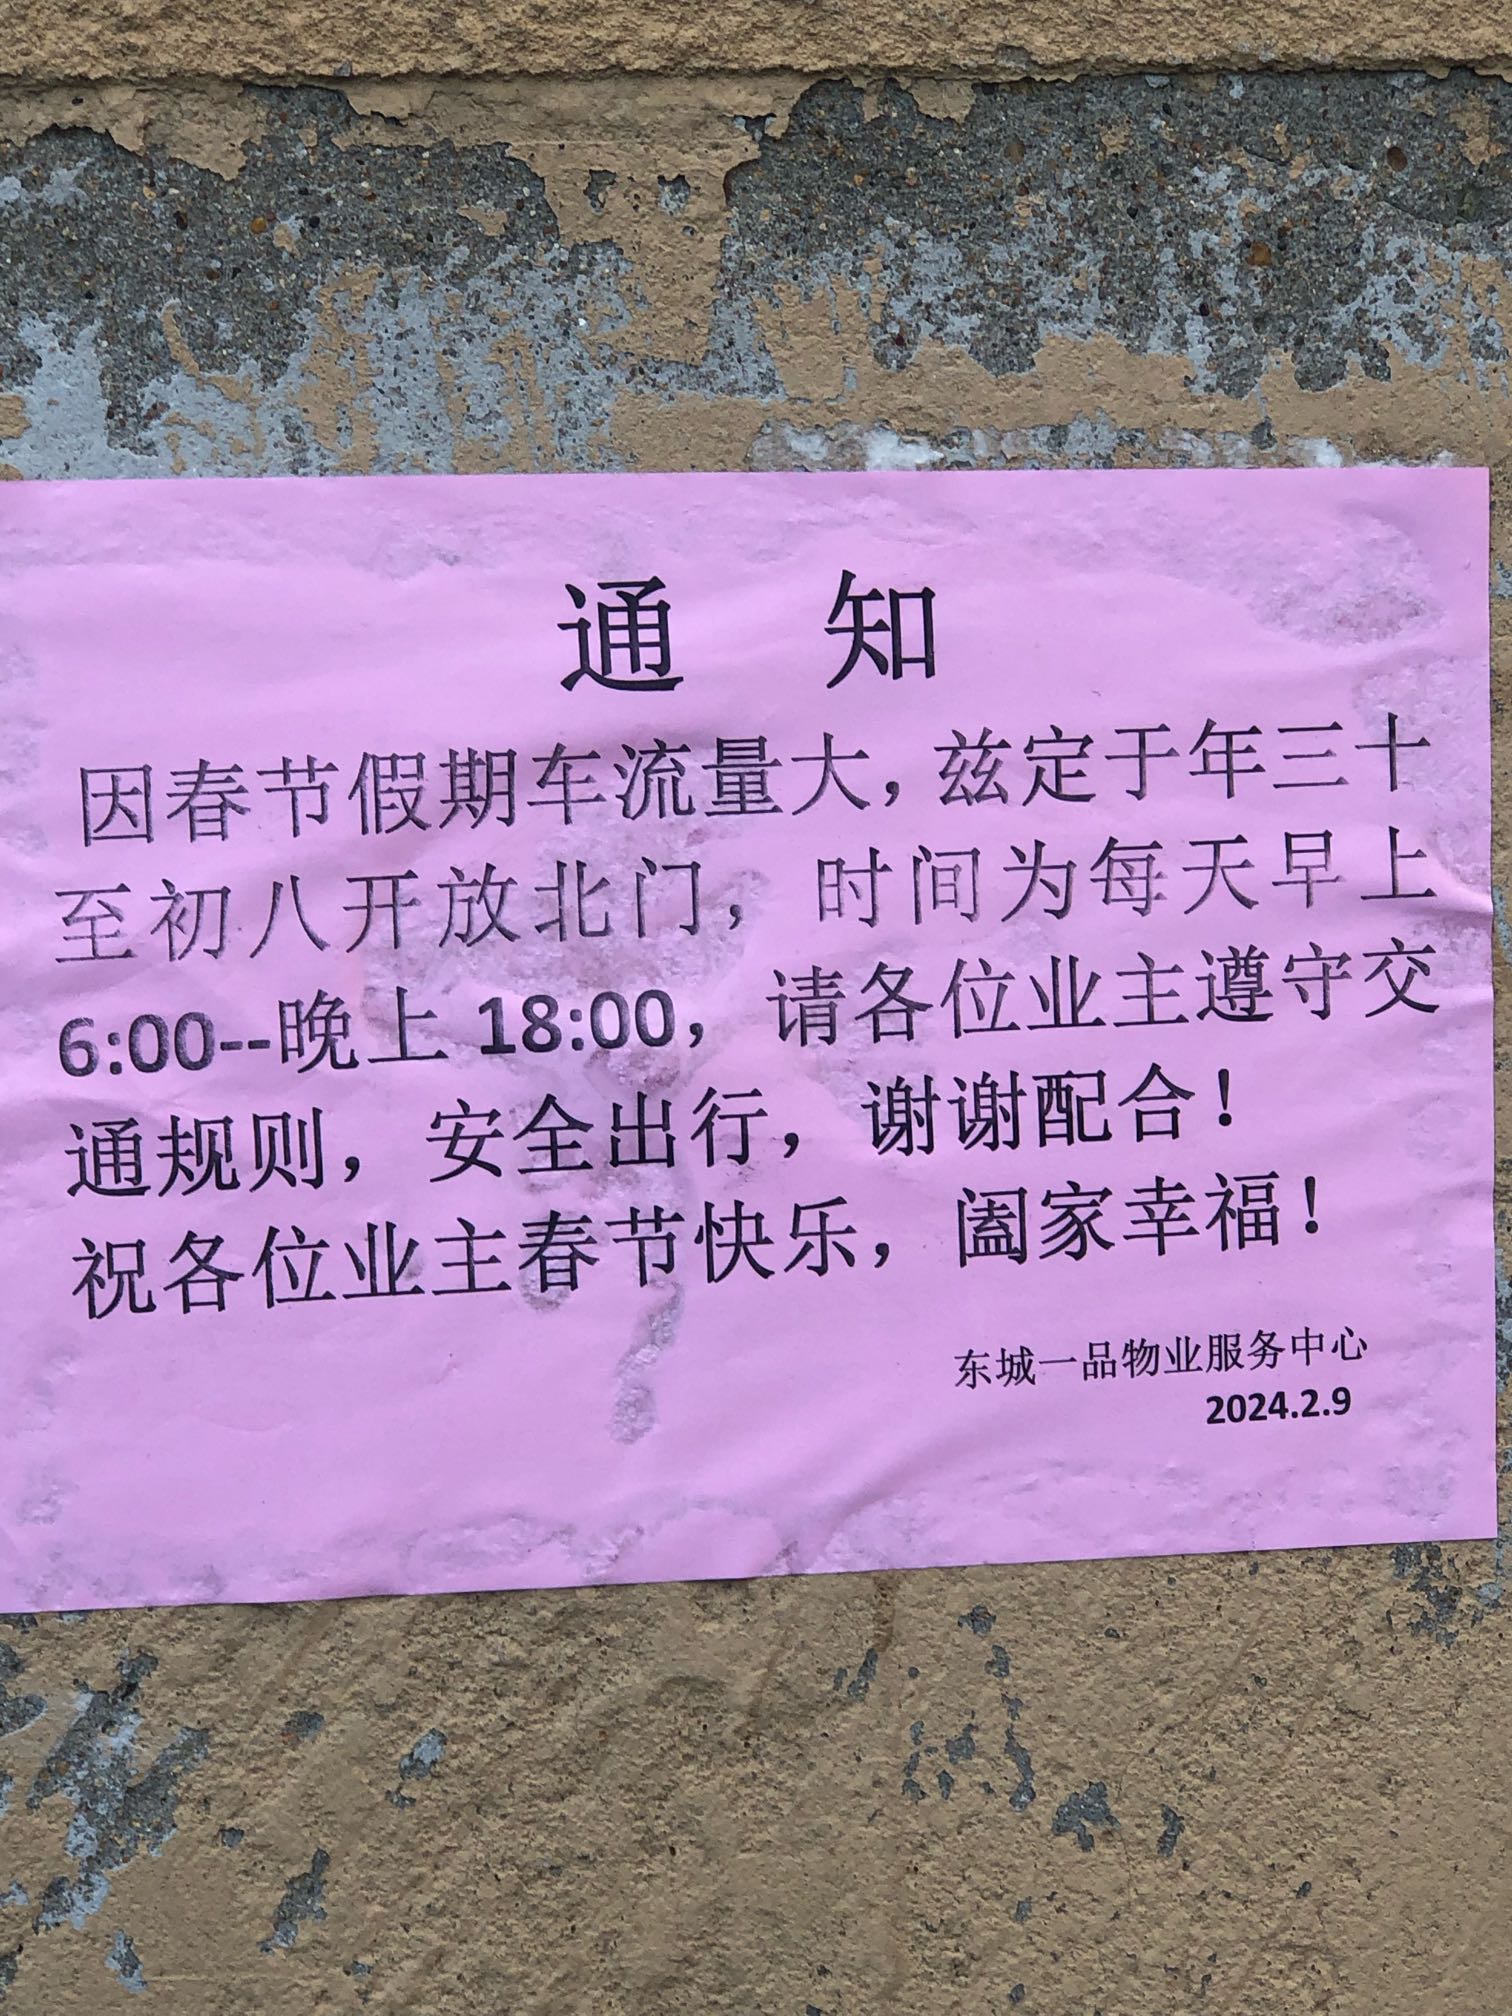 通 知
因春节假期车流量大，兹定于年三十
至初八开放北门，时间为每天早上
6:00--晚上 18:00，请各位业主遵守交
通规则，安全出行，谢谢配合！
祝各位业主春节快乐，阖家幸福！
东城一品物业服务中心
2024.2.9